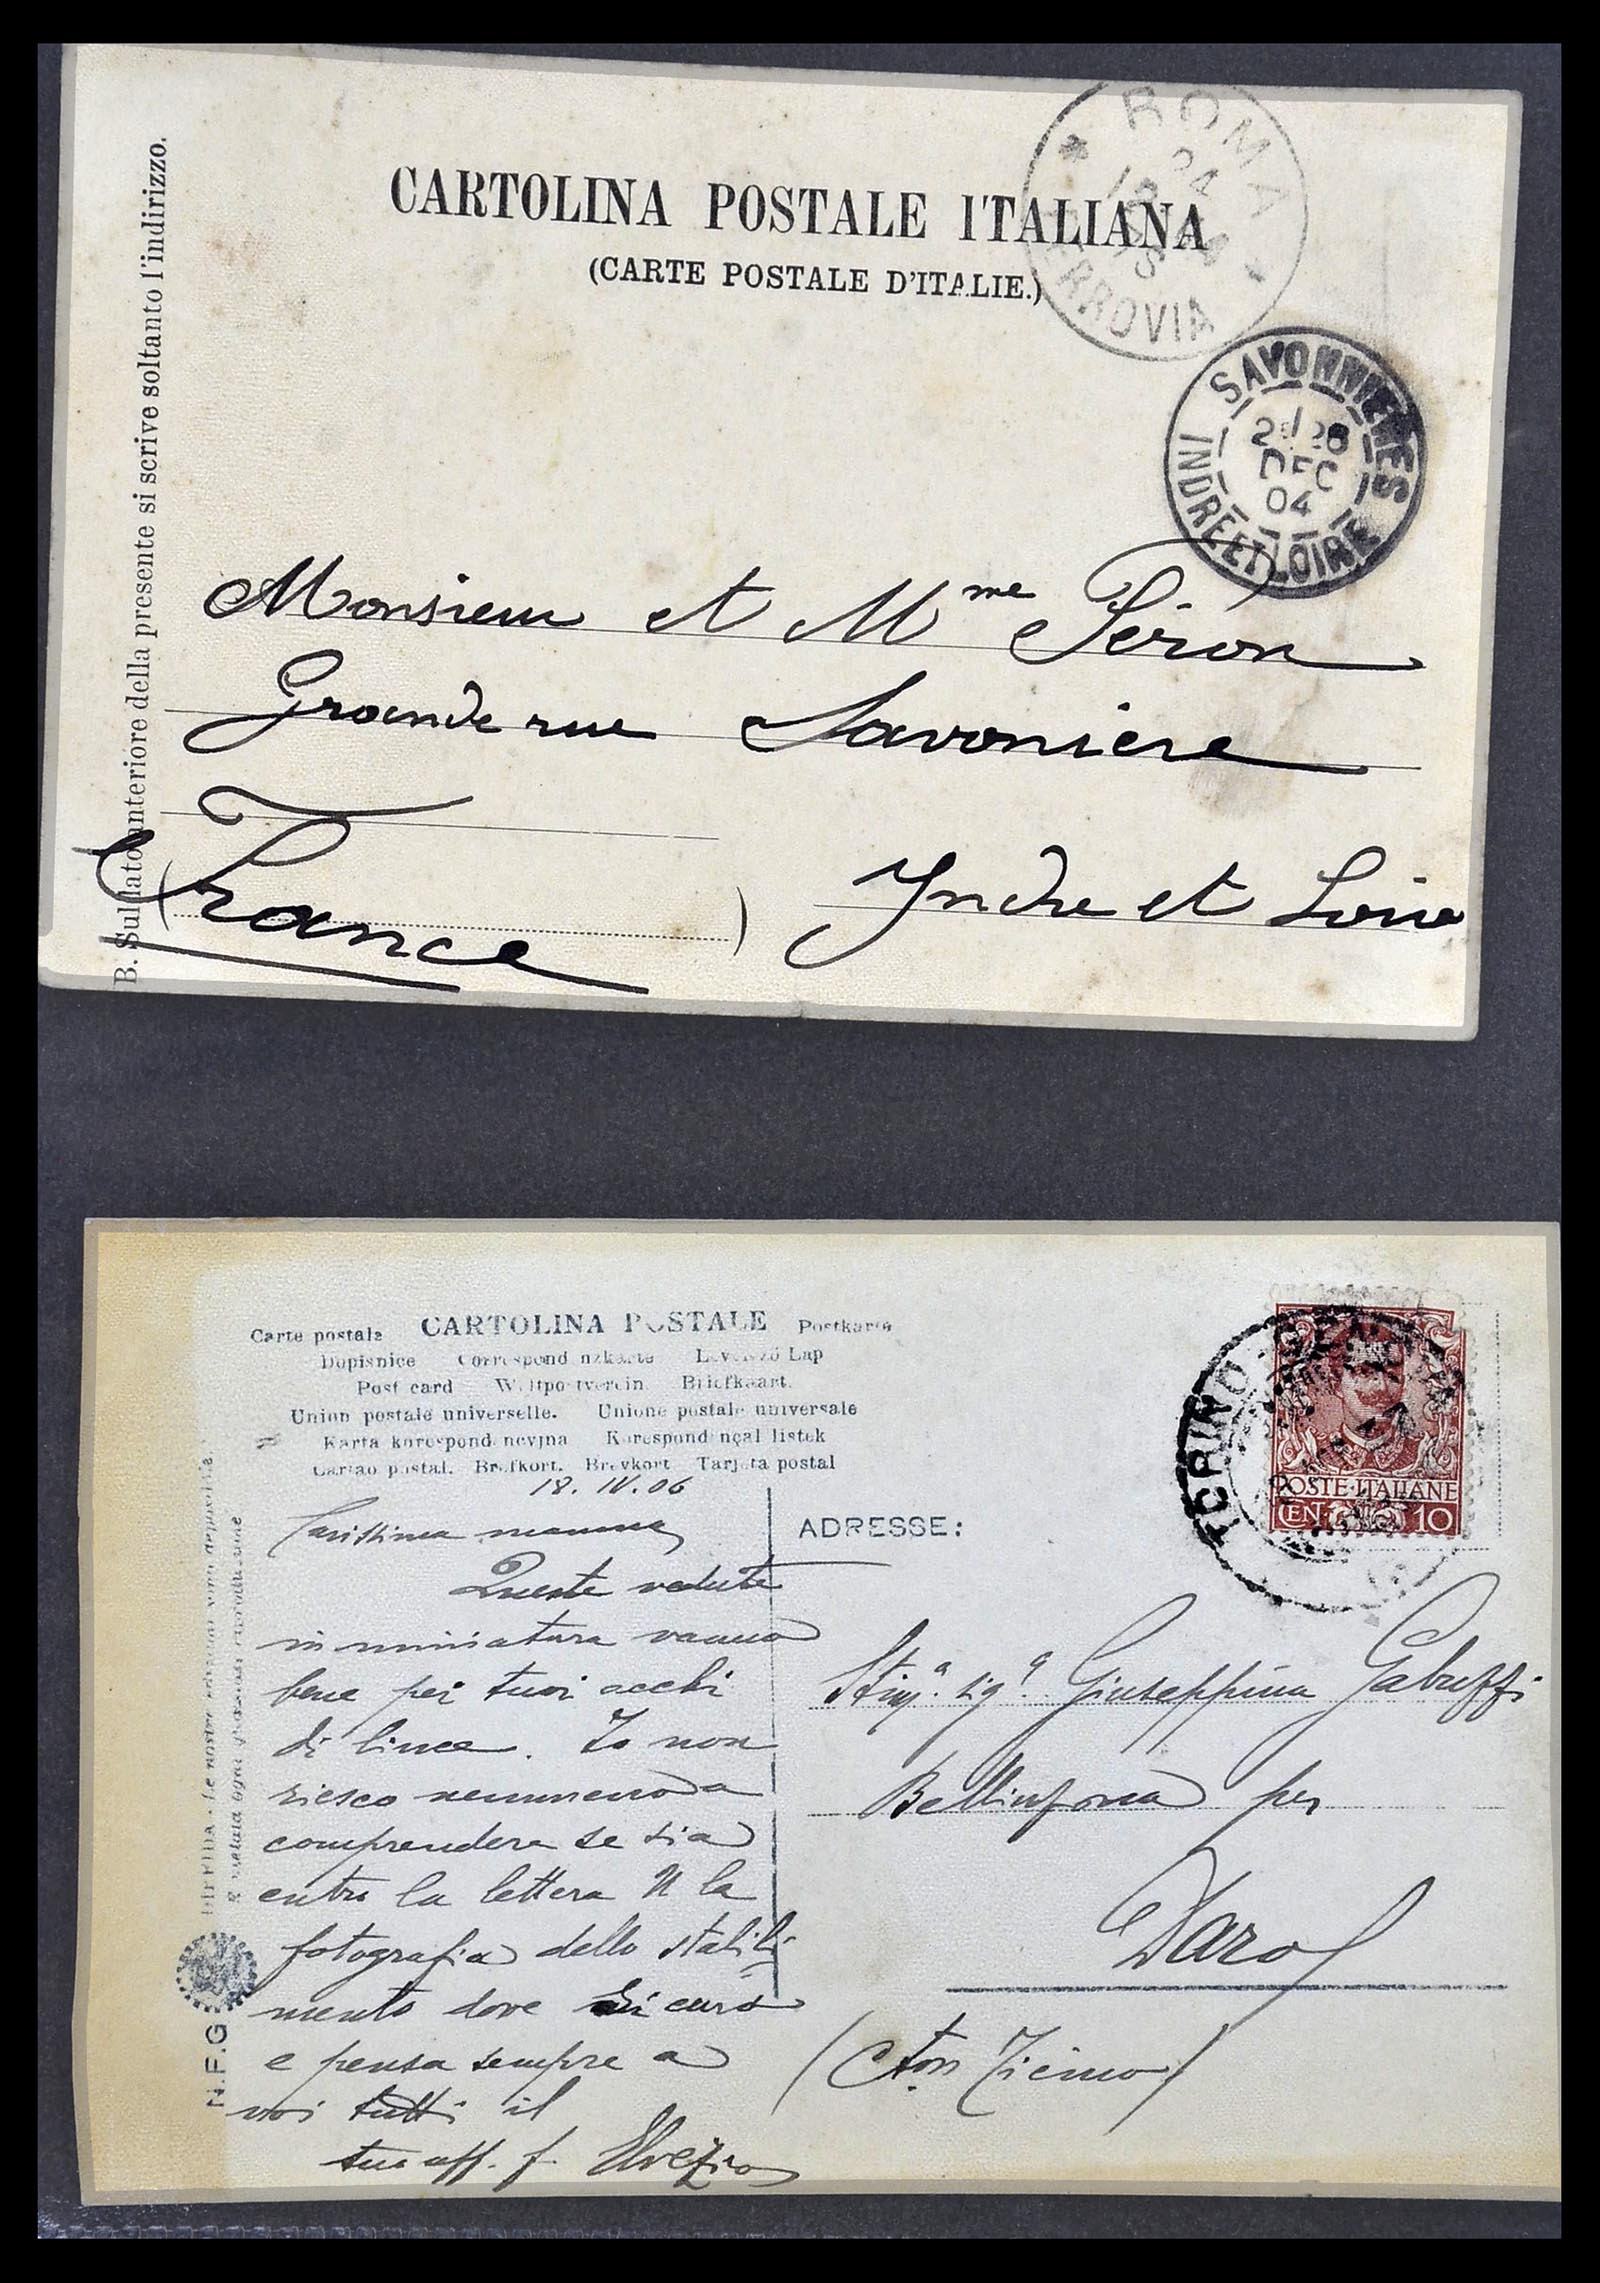 CARTOLINA POSTALE ITALIANA
(CARTE POSTALE D'ITALIE.)
B. Sul lato anteriore della presente si scrive soltanto l'indirizzo.
ROMA
FERROVIA
SAVONNIERES
DEC
04
INDRE ET LOIRE
Monsieur et Mme Féron
Grande rue Savoniere
Indre et Loire
(France)
Carte postale CARTOLINA POSTALE Postkarte
Dopisnice Correspondenzkarte Levelező Lap
Post card Weltpostverein Briefkaart.
Union postale universelle. Unione postale universale
Karta korespondencyjna Korespondençal listek
Cartao postal. Brefkort. Brevkort Tarjeta postal
18. IV. 06
Carissima mamma,
Queste vedute
in miniatura vanno
bene pei tuoi occhi
di lince. Io non
riesco nemmeno a
comprendere se sia
entro la lettera N la
fotografia dello stabili-
mento dove
e pensa sempre a
voi tutti il
tuo aff. f. Elvezio
ADRESSE:
TORINO
POSTE·ITALIANE
CEN. 10
Stima. siga. Giuseppina Gabuzzi
Bellinzona per
Daro
(Cton Ticino)
N.P.G
DIFFIDA - Le nostre